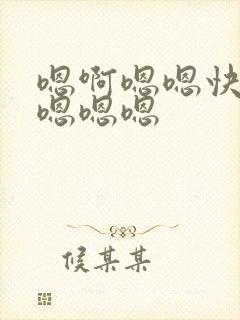 嗯啊嗯嗯快
嗯嗯嗯
候某某